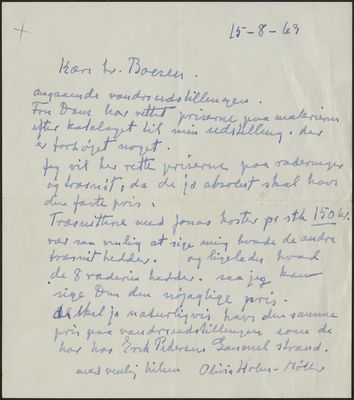 15-8-63
Kære hr. Boesen.
angaaende vandreudstillingen.
Fru Dam har rettet priserne paa malerierne
efter kataloget til min udstilling. der
er forhøjet noget.
Jeg vil her rette priserne paa raderinger
og træsnit, da de jo absolut skal have
den faste pris.
Træsnittene med Jonas koster pr stk 150 kr.
vær saa venlig at sige mig hvad de andre
træsnit hedder. og ligeledes hvad
de 8 raderin hedder. saa jeg kan
sige Dem den nøjagtige pris.
de skal jo naturligvis have den samme
pris paa vandreudstillingen som de
har hos Erik Pedersen Gammel strand.
med venlig hilsen Olivia Holm-Møller